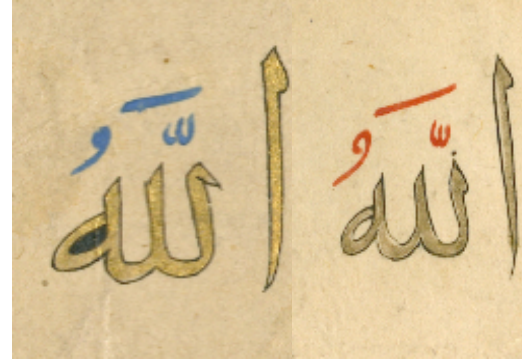 اللَّهُ اللَّهُ